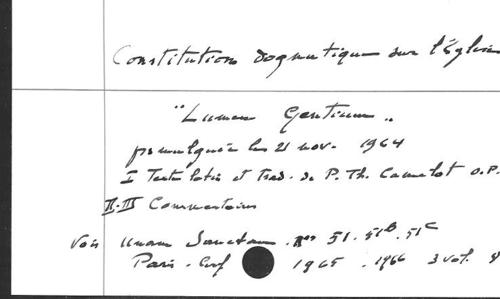 Constitution dogmatique sur l'Église
"Lumen Gentium"
promulguée le 21 nov. 1964
I Texte latin et trad. de P. Th. Camelot O.P.
II-III Commentaires
Voir Unam Sanctam. nos 51. 51B. 51C
Paris. Cerf 1965 . 1966 3 vol.